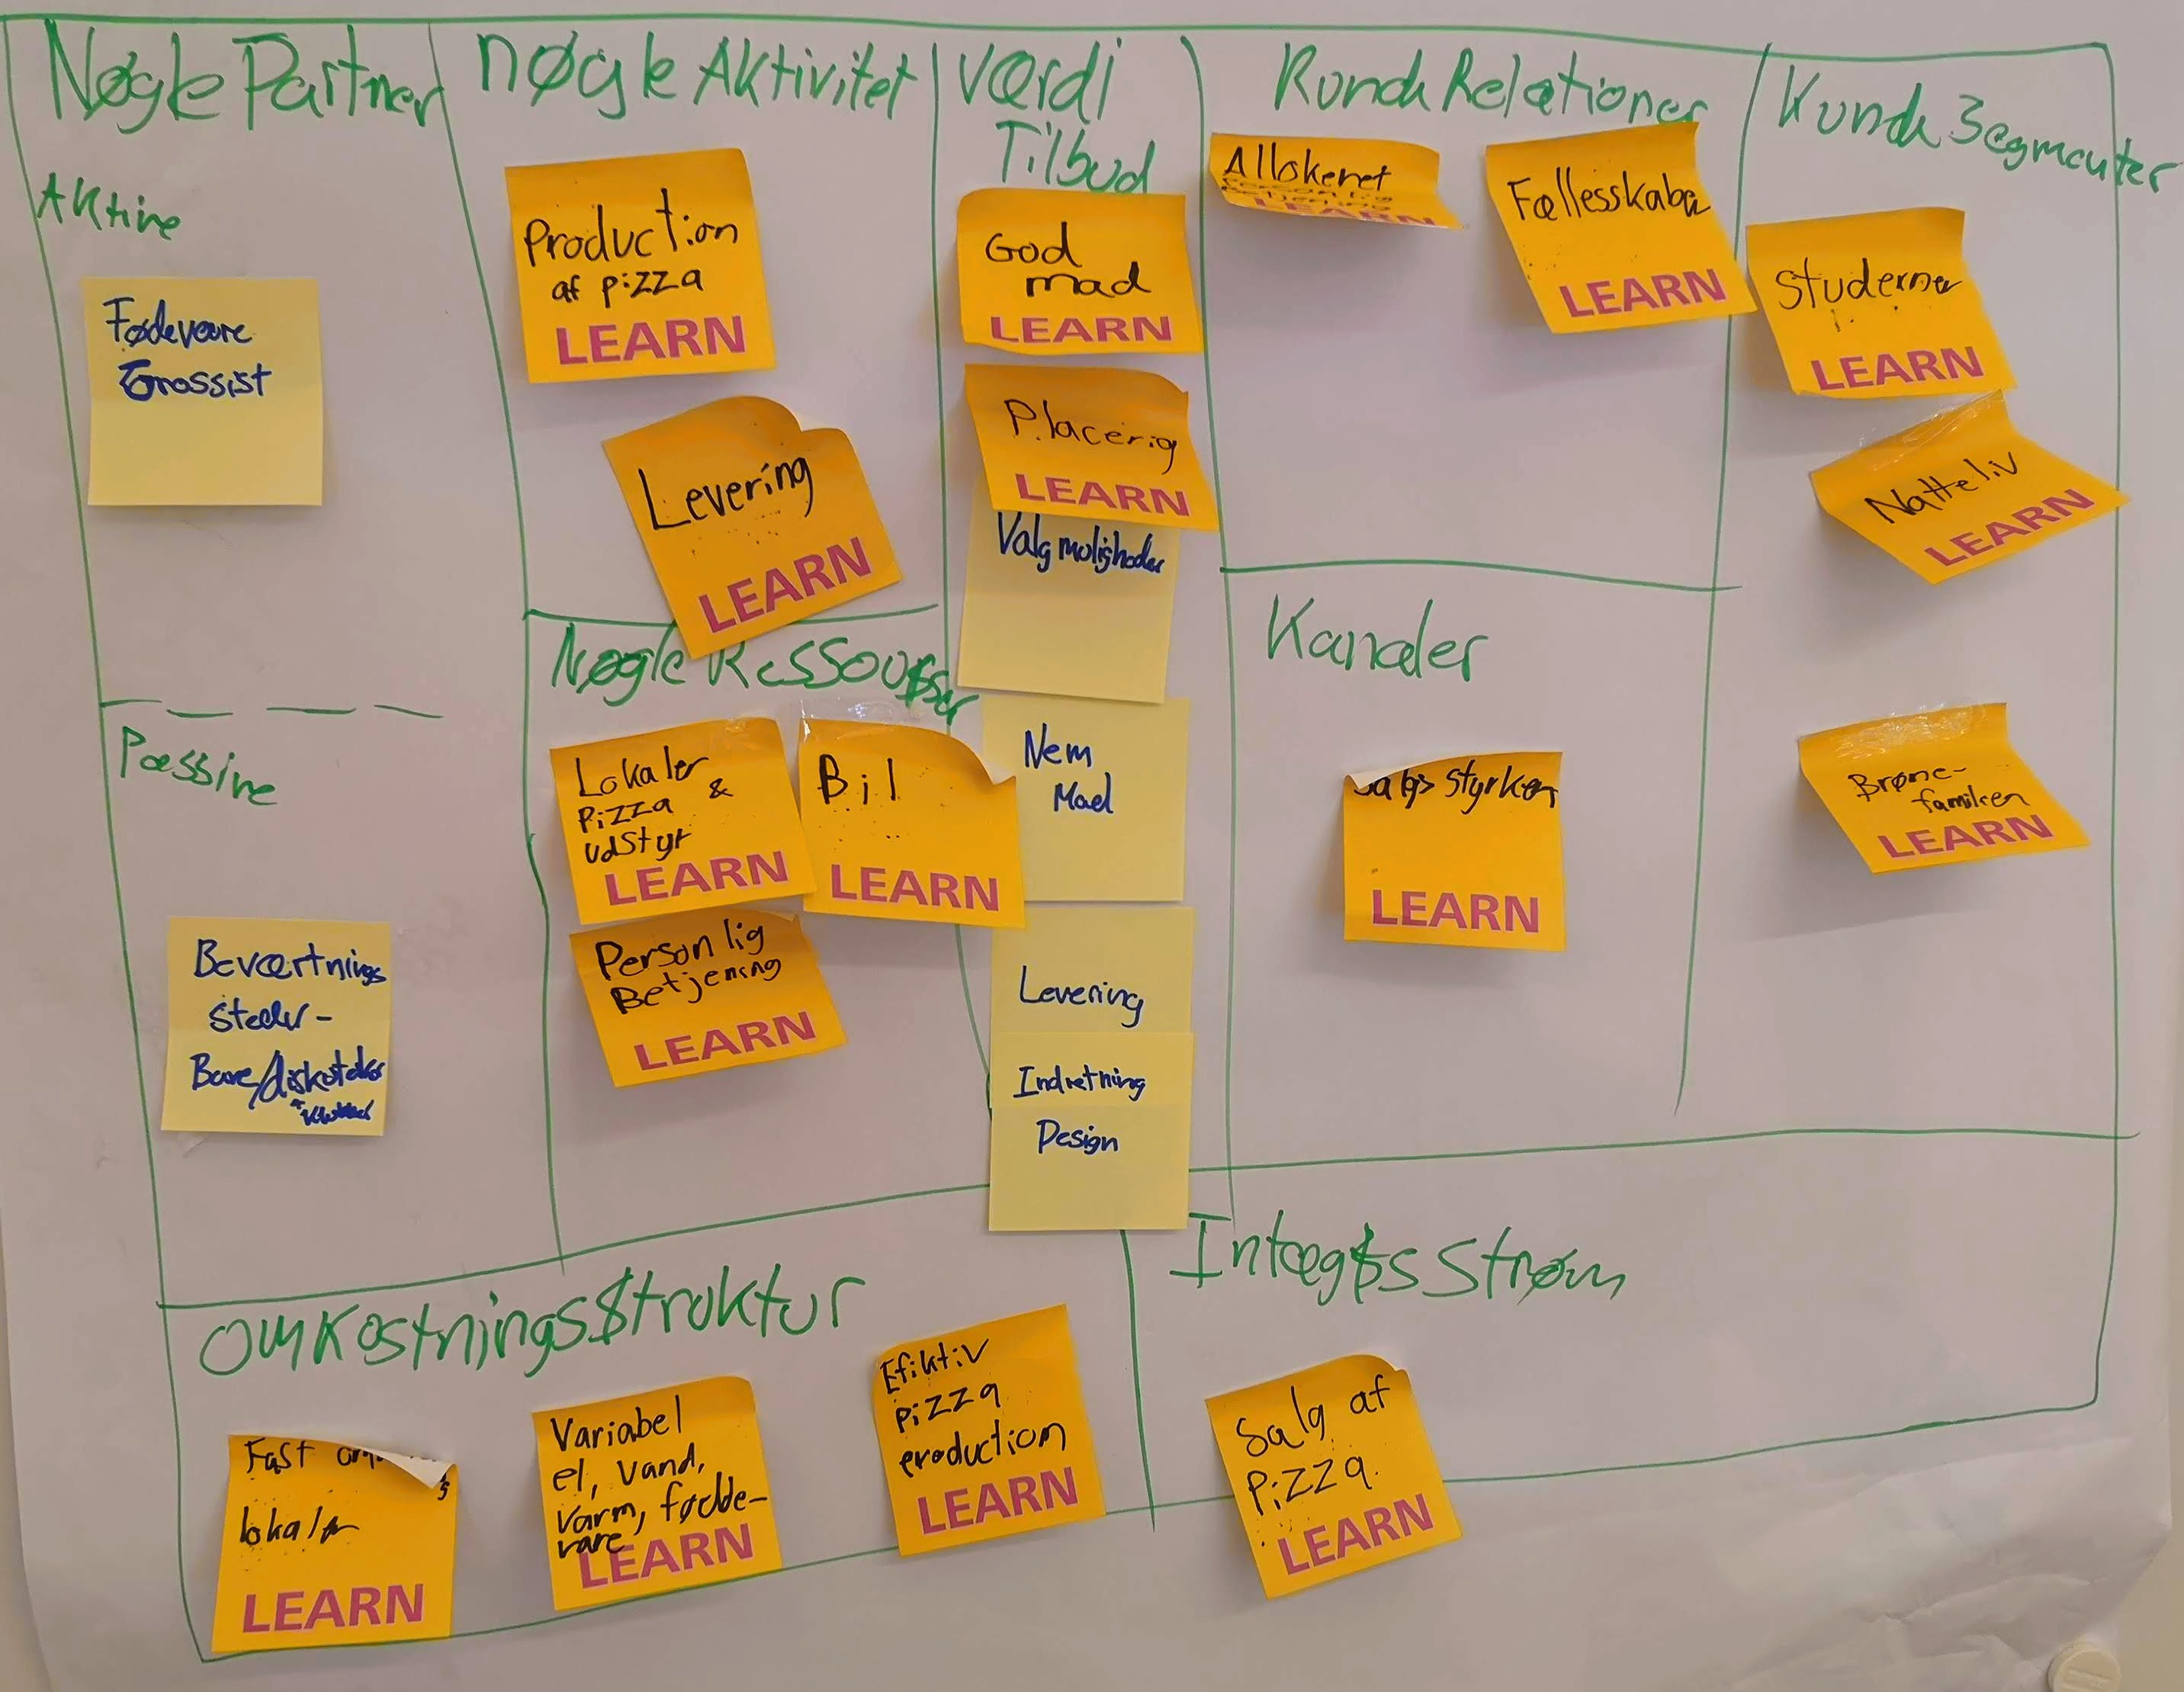 Nøgle Partner
Aktive
Fødevare
Grossist
Passive
Beværtnings
Steder-
Bare/diskoteker
nøgle Aktivitet
Production
af pizza
LEARN
Levering
LEARN
Nøgle Ressourser
Lokaler
Pizza &
udstyr
LEARN
Bil
LEARN
Person lig
Betjening
LEARN
Værdi
Tilbud
God
mad
LEARN
Placerig
LEARN
Valg muligheder
Nem
Mad
Levering
Indretning
Design
Kunde Relationer
Allokeret
LEARN
Fællesskaber
LEARN
Kanaler
Salgs styrken
LEARN
Kunde Segmenter
Studerner
LEARN
Natteliv
LEARN
Børne-
familien
LEARN
OmkostningsStruktur
Fast
lokaler
LEARN
Variabel
el, vand,
varm, fødde-
vare
LEARN
Efiktiv
pizza
production
LEARN
Intægts Strøm
Salg af
Pizza.
LEARN